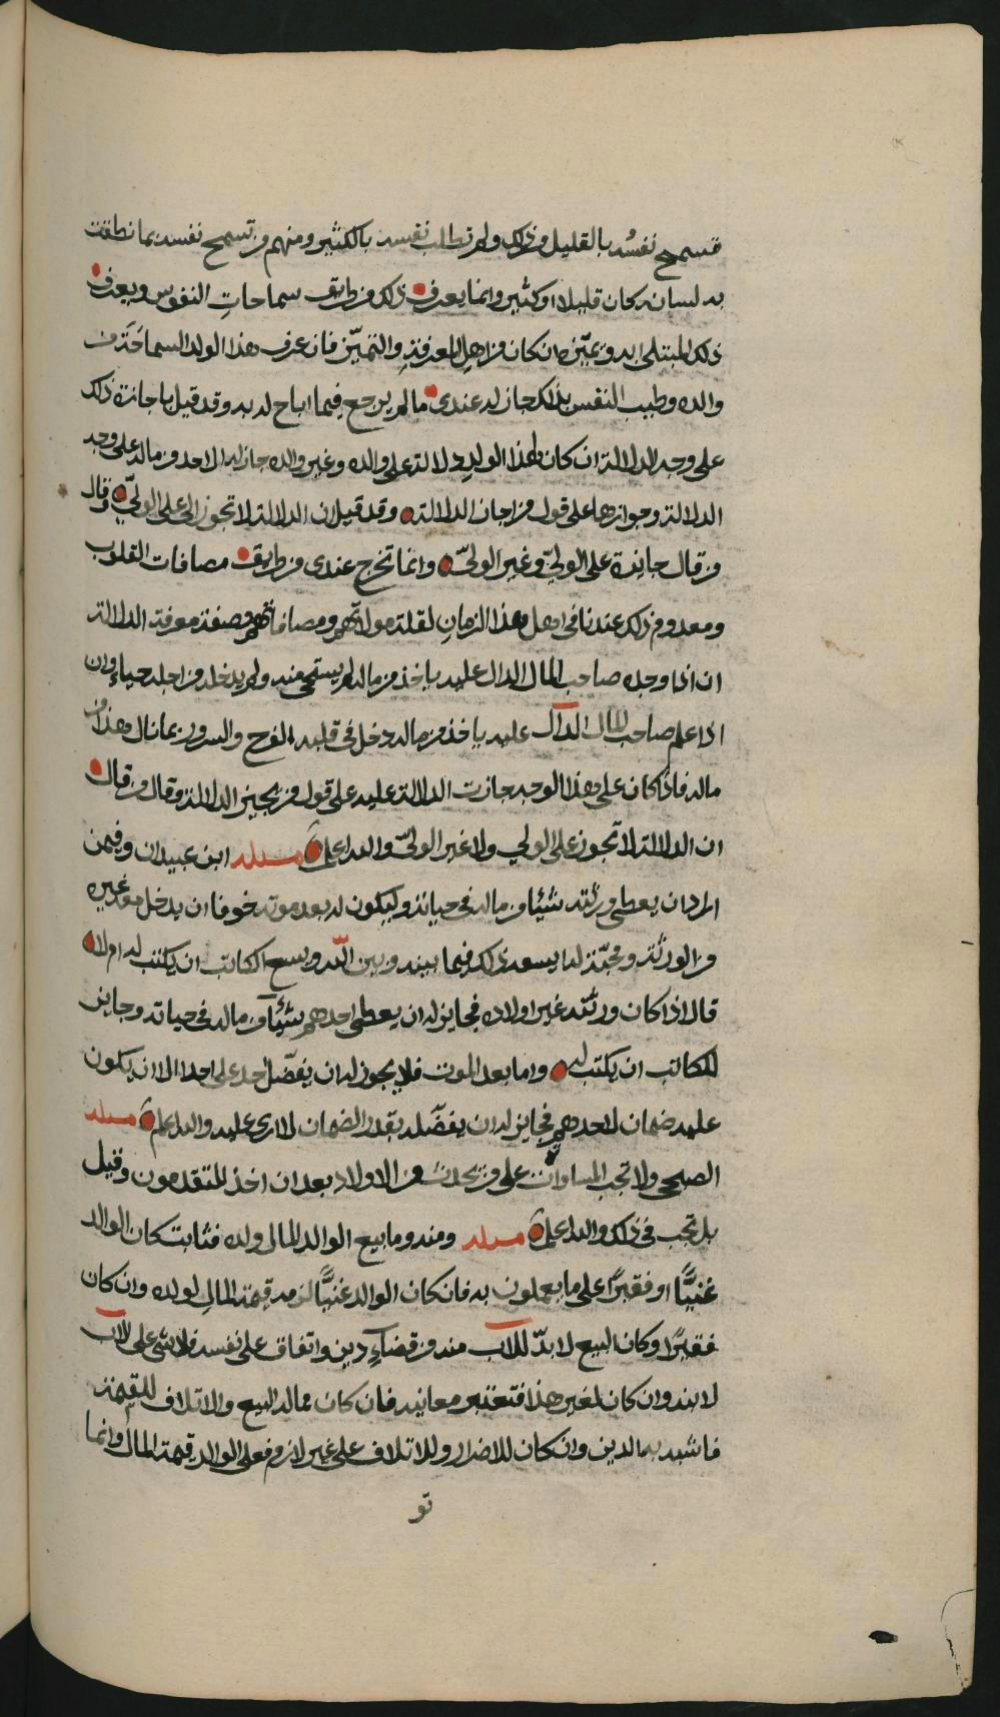 فتسمح نفسُه بالقليل من ذلك ولم تطلب نفسه بالكثير ومنهم من تسمح نفسه بما نطقت
به لسانه كان قليلا او كثير وانما يعرف ذلك من طريق سماحاتِ النفوس ويعرف
ذلك المبتلى به ويميّز ان كان من اهل المعرفةِ والتميّز فان عرف هذا الولد السماحَة من
والده وطيب النفس بذلك جاز له عندى ما لم يرجع فيما اباح له به وقد قيل باجازة ذلك
على وجه الدلالة ان كان لهذا الولدِ دلالة على والده وغير والده جاز له الاخذ من ماله على وجه
الدلالة وجوازها على قول من اجاز الدلالة وقد قيل ان الدلالة لا تجوز الا على الوليّ وقال
من قال جائزة على الوليّ وغير الوليّ وانما تخرج عندى من طريق مصافات القلوب
ومعدوم ذلك عندنا فى اهل هذا الزمانِ لقلة مولاتهم ومصافاتهم وصفة معرفة الدلالة
ان اذا وجده صاحب المال الدال عليه ياخذ من ماله لم يستحي منه ولم يدخله من اجله حياء وان
اذا علم صاحب المال الدآل عليه ياخذ من ماله دخل فى قلبه الفرح والسرور بما نال هذا من
ماله فاذا كان على هذا الوجه جازت الدلالة عليه على قول من يجيز الدلالة وقال من قال
ان الدلالة لا تجوز على الولي ولا غير الوليّ والله اعلم مسئلة ابن عبيدان وفيمن
اراد ان يعطى ورثته شيئا من ماله فى حياته وليكون له بعد موته خوفا ان يدخل معه غيره
من الورثة ومحبّة له ايسعه ذلك فيما بينه وبين الله ويسع الكاتب ان يكتب له ام لا
قال اذا كان ورثته غير اولاده فجايز له ان يعطى احدهم شيئًا من ماله فى حياته وجايز
للكاتب ان يكتب له واما بعد الموت فلا يجوز له ان يفضّل احد على احد الا ان يكون
عليه ضمان لاحدهم فجايز له ان يفضّله بقدر الضمان لا ارى عليه والله اعلم مسئلة
الصبحى ولا تجب المساوات على من يحدث من الاولاد بعد ان اخذ المتقدمون وقيل
بل تجب فى ذلك والله اعلم مسئلة ومنه وما بيع الوالد لمال ولده فثابت كان الوالد
غنيًّا او فقيرًا على ما يعملون به فان كان الوالد غنيًّا لزمه قيمة المالِ لولده وان كان
فقيرًا وكان البيع لا بدّ للآب منه من قضآءِ دين وانفاق على نفسه فلا شى على الآب
لابنه وان كان لغير هذا فتعتبر معانيه فان كان ماله البيع والاتلاف للقيمة
فاشبه به الدين وان كان للاضرار وللاتلاف على غير لازم فعلى الوالد قيمة المال وانما
تو